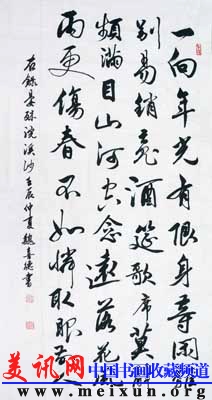 一向年光有限身等閑離
别易銷魂酒筵歌席莫辭
頻滿目山河空念遠落花風
雨更傷春不如憐取眼前人
右錄晏殊浣溪沙壬辰仲夏魏喜德書
美讯网 中国书画收藏频道
www.meixun.org